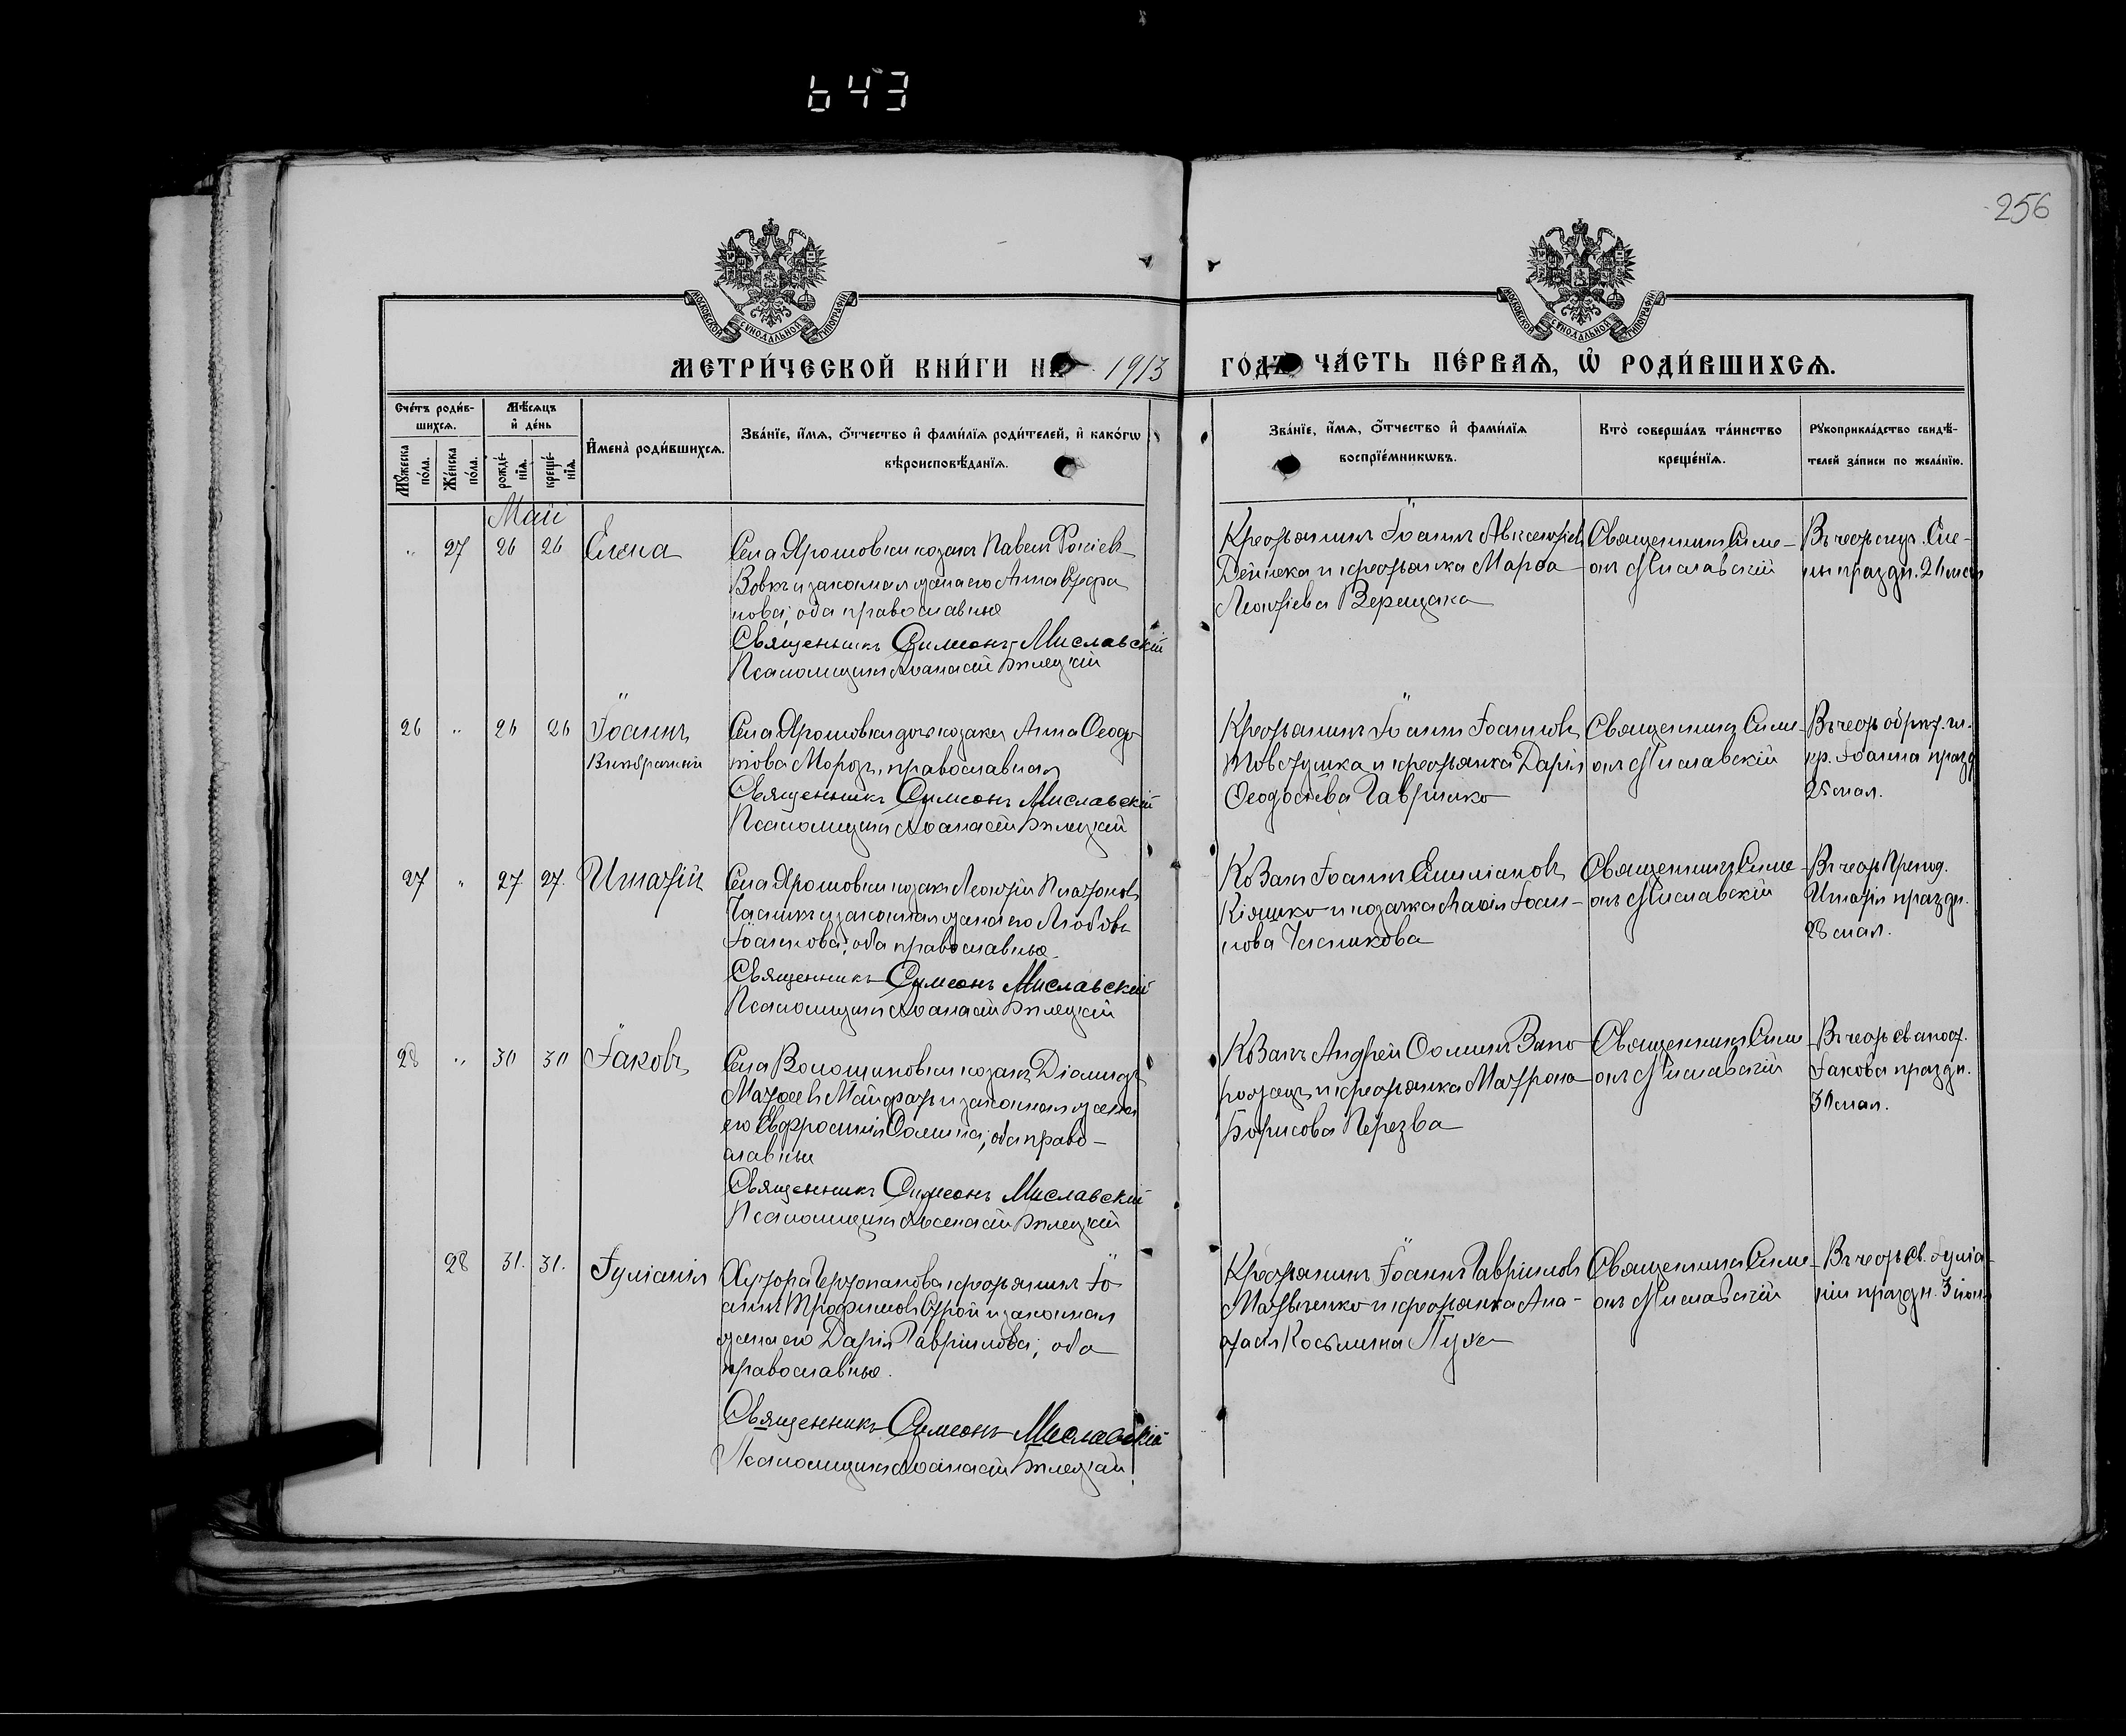 643
256
МОСКОВСКОЙ СѴНОДАЛЬНОЙ ТИПОГРАФІИ
МОСКОВСКОЙ СѴНОДАЛЬНОЙ ТИПОГРАФІИ
МЕТРИ́ЧЕСКОЙ КНИ́ГИ НА 1913
ГО́ДЪ ЧА́СТЬ ПЕ́РВАЯ, Ѡ҆ РОДИ́ВШИХСЯ.
Сче́тъ роди́в-
шихся.
Мꙋ́жеска по́ла.
Же́нска по́ла.
Мѣ́сяцъ
и҆ де́нь
рожде́-
нїя.
креще́-
нїя.
И҆мена̀ роди́вшихся.
Зва́нїе, и҆́мя, ѻ҆́тчество и҆ фами́лїя роди́телей, и҆ како́гѡ
вѣроисповѣ́данїя.
Зва́нїе, и҆́мя, ѻ҆́тчество и҆ фами́лїя
воспрїе́мникѡвъ.
Кто̀ соверша́лъ та́инство
креще́нїя.
Рꙋкоприкла́дство свидѣ́-
телей за́писи по жела́нїю.
Май
" 27 26 26 Елена
Села Ярошовки козакъ Павелъ
Вовкъ и законная жена его Анна
нова; оба православные
Священникъ Симеонъ Миславскій
Псаломщикъ Аѳанасій Билецкій
Крестьянинъ Іоаннъ Авксентіевъ
Дейнека и крестьянка Марѳа
Леонтіева Верещака
Священникъ Симе-
онъ Миславскій
Въ честь Еле-
ны праздн. 21 мая
26 " 26 26 Іоаннъ
Внѣбрачный
Села Ярошовки дочь козака Анна Ѳеодо
това Морозъ, православная
Священникъ Симеонъ Миславскій
Псаломщикъ Аѳанасій Билецкій
Крестьянинъ Іоаннъ Іоанновъ
Товстушка и крестьянка Дарія
Ѳеодосіева Гавриленко
Священникъ Симе-
онъ Миславскій
Въ честь обрѣт. гл.
кр. Іоанна празд
25 мая.
27 " 27 27. Игнатій
Села Ярошовки козакъ Леонтій Платоновъ
Часникъ и законная жена его Любовь
Іоаннова; оба православные.
Священникъ Симеонъ Миславскій
Псаломщикъ Аѳанасій Билецкій
Козакъ Іоаннъ Емиліановъ
Кіяшко и козачка Марія Іоан-
нова Часникова
Священникъ Симе-
онъ Миславскій
Въ честь Препод.
Игнатія праздн.
28 мая.
28 " 30 30 Іаковъ
Села Волошиновки козакъ Діомидъ
Матѳеевъ и законная жена
его Евфросинія Ѳомина; оба право-
славные
Священникъ Симеонъ Миславскій
Псаломщикъ Аѳанасій Билецкій
Козакъ Андрей Ѳоминъ Запо
рожецъ и крестьянка Матрона
Борисова Перезва
Священникъ Симе-
онъ Миславскій
Въ честь св апост.
Іакова праздн.
30 мая.
28 31. 31. Іуліанія
Хутора крестьянинъ Іо
аннъ Трофимовъ Строй и законная
жена его Дарія Гавріилова; оба
православные.
Священникъ Симеонъ Миславскій
Псаломщикъ Аѳанасій Билецкій
Крестьянинъ Іоаннъ Гавріиловъ
Матвѣенко и крестьянка Ана-
стасія Косьмина
Священникъ Симе-
онъ Миславскій
Въ честь св. Іуліа-
ніи праздн. 3 іюня